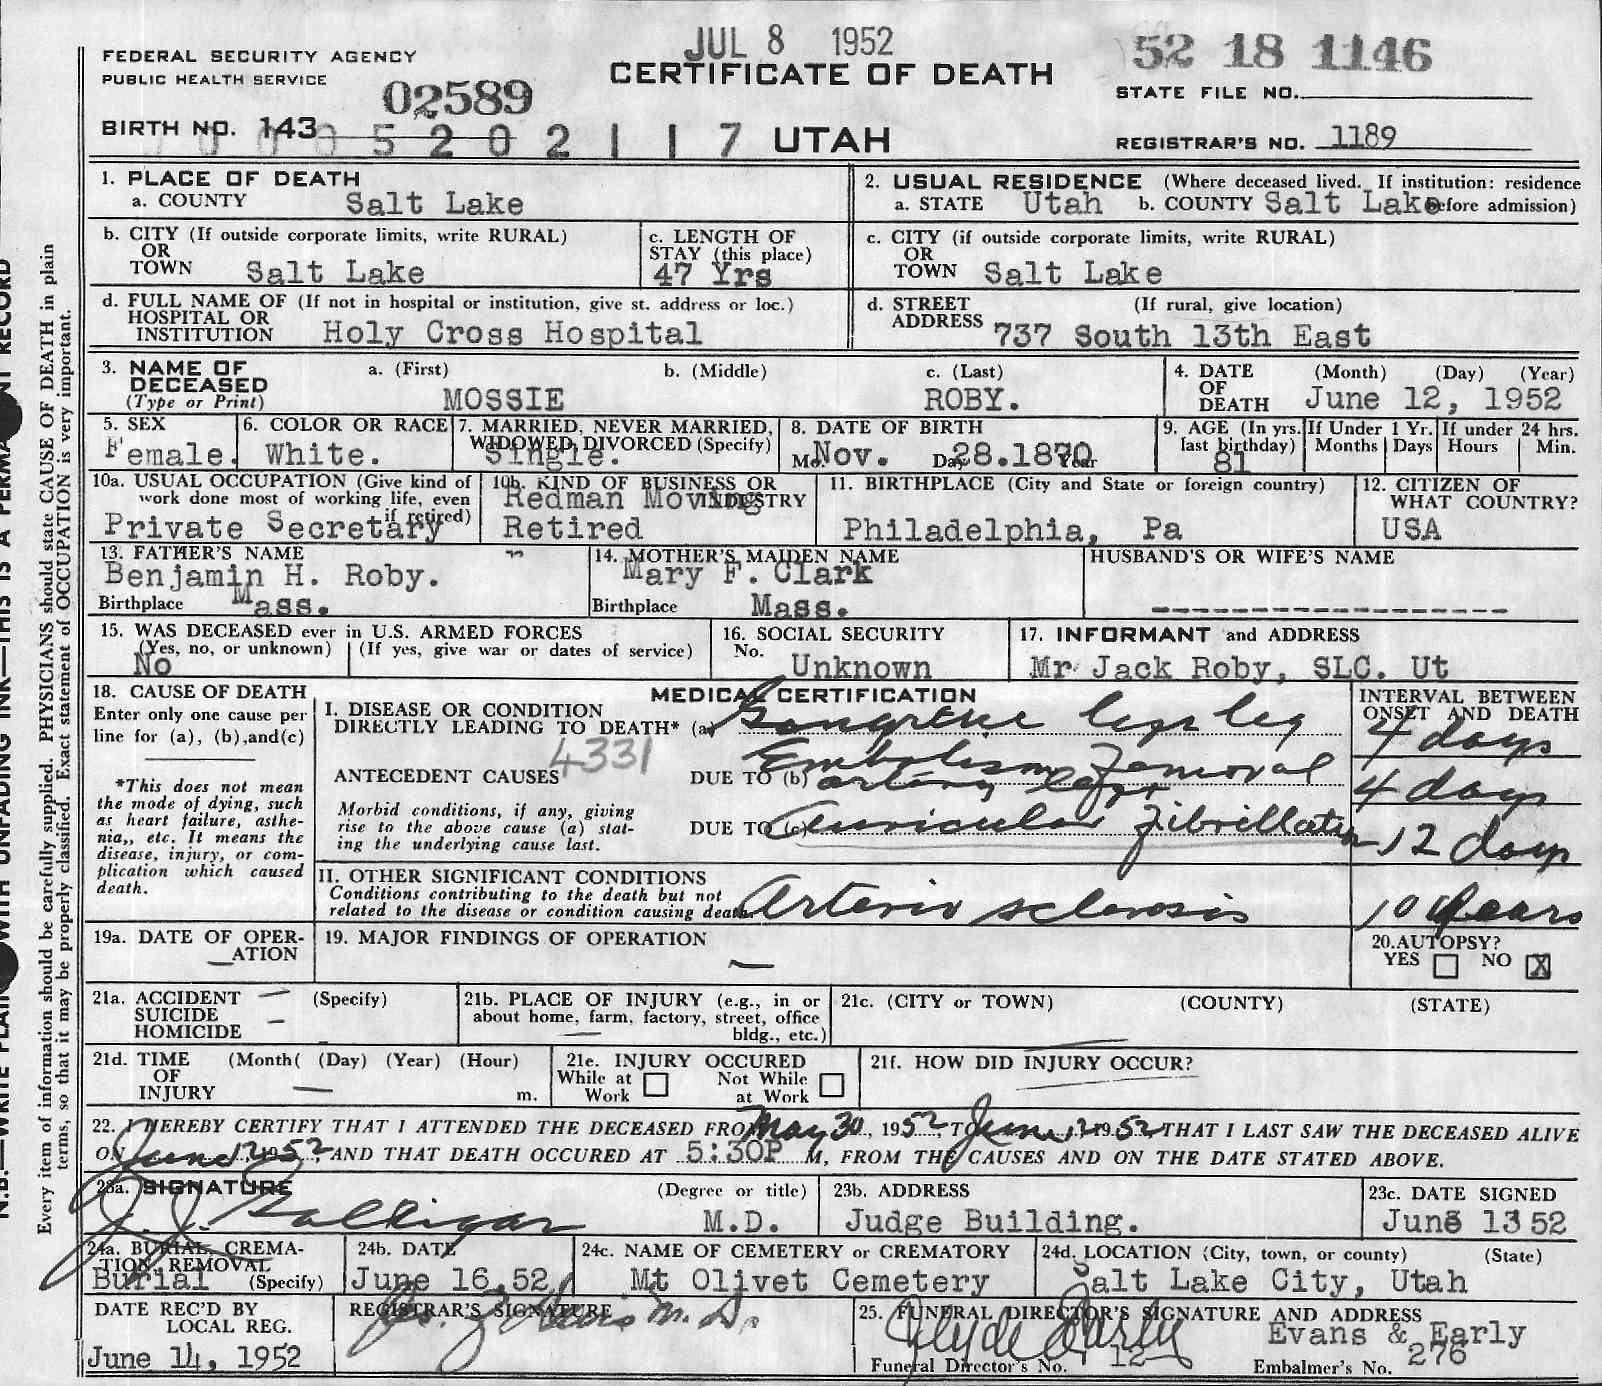 JUL 8 1952
52 18 1146
FEDERAL SECURITY AGENCY
PUBLIC HEALTH SERVICE
CERTIFICATE OF DEATH
STATE FILE NO.
02589
BIRTH NO. 143
5 2 0 2 1 1 7
UTAH
REGISTRAR'S NO. 1189
1. PLACE OF DEATH
a. COUNTY Salt Lake
2. USUAL RESIDENCE (Where deceased lived. If institution: residence
a. STATE Utah b. COUNTY Salt Lake before admission)
b. CITY (If outside corporate limits, write RURAL)
OR
TOWN Salt Lake
c. LENGTH OF
STAY (this place)
47 Yrs
c. CITY (if outside corporate limits, write RURAL)
OR
TOWN Salt Lake
d. FULL NAME OF (If not in hospital or institution, give st. address or loc.)
HOSPITAL OR
INSTITUTION Holy Cross Hospital
d. STREET (If rural, give location)
ADDRESS 737 South 13th East
3. NAME OF a. (First) b. (Middle) c. (Last)
DECEASED
(Type or Print) MOSSIE ROBY.
4. DATE (Month) (Day) (Year)
OF
DEATH June 12, 1952
5. SEX
Female.
6. COLOR OR RACE
White.
7. MARRIED, NEVER MARRIED,
WIDOWED, DIVORCED (Specify)
Single.
8. DATE OF BIRTH
Mo. Nov. Day 28.1870 Year
9. AGE (In yrs.
last birthday)
81
If Under 1 Yr.
Months Days
If under 24 hrs.
Hours Min.
10a. USUAL OCCUPATION (Give kind of
work done most of working life, even
if retired)
Private Secretary
10b. KIND OF BUSINESS OR
INDUSTRY
Redman Moving
Retired
11. BIRTHPLACE (City and State or foreign country)
Philadelphia, Pa
12. CITIZEN OF
WHAT COUNTRY?
USA
13. FATHER'S NAME
Benjamin H. Roby.
Birthplace Mass.
14. MOTHER'S MAIDEN NAME
Mary F. Clark
Birthplace Mass.
HUSBAND'S OR WIFE'S NAME
15. WAS DECEASED ever in U.S. ARMED FORCES
(Yes, no, or unknown) (If yes, give war or dates of service)
No
16. SOCIAL SECURITY
No. Unknown
17. INFORMANT and ADDRESS
Mr Jack Roby, SLC. Ut
18. CAUSE OF DEATH
Enter only one cause per
line for (a), (b),and(c)
*This does not mean
the mode of dying, such
as heart failure, asthe-
nia,, etc. It means the
disease, injury, or com-
plication which caused
death.
MEDICAL CERTIFICATION
I. DISEASE OR CONDITION
DIRECTLY LEADING TO DEATH* (a) Gangrene leg
4331
ANTECEDENT CAUSES
DUE TO (b) Embolism Femoral
artery
Morbid conditions, if any, giving
rise to the above cause (a) stat-
ing the underlying cause last.
DUE TO (c) Auricular Fibrillation
II. OTHER SIGNIFICANT CONDITIONS
Conditions contributing to the death but not
related to the disease or condition causing death. Arterio sclerosis
INTERVAL BETWEEN
ONSET AND DEATH
4 days
4 days
12 days
10 years
19a. DATE OF OPER-
ATION
19. MAJOR FINDINGS OF OPERATION
20.AUTOPSY?
YES NO X
21a. ACCIDENT (Specify)
SUICIDE
HOMICIDE
21b. PLACE OF INJURY (e.g., in or
about home, farm, factory, street, office
bldg., etc.)
21c. (CITY or TOWN) (COUNTY) (STATE)
21d. TIME (Month( (Day) (Year) (Hour)
OF
INJURY m.
21e. INJURY OCCURED
While at Work Not While at Work
21f. HOW DID INJURY OCCUR?
22. I HEREBY CERTIFY THAT I ATTENDED THE DECEASED FROM May 30, 1952, TO June 12 1952 THAT I LAST SAW THE DECEASED ALIVE
ON June 12 1952, AND THAT DEATH OCCURED AT 5:30P M, FROM THE CAUSES AND ON THE DATE STATED ABOVE.
23a. SIGNATURE (Degree or title)
J. J. Galligan M.D.
23b. ADDRESS
Judge Building.
23c. DATE SIGNED
June 13 52
24a. BURIAL, CREMA-
TION, REMOVAL
Burial (Specify)
24b. DATE
June 16,52
24c. NAME OF CEMETERY or CREMATORY
Mt Olivet Cemetery
24d. LOCATION (City, town, or county) (State)
Salt Lake City, Utah
DATE REC'D BY
LOCAL REG.
June 14, 1952
REGISTRAR'S SIGNATURE
M.D.
25. FUNERAL DIRECTOR'S SIGNATURE AND ADDRESS
Clyde Early Evans & Early
Funeral Director's No. 12 Embalmer's No. 276
N.B.—WRITE PLAINLY WITH UNFADING INK—THIS IS A PERMANENT RECORD
Every item of information should be carefully supplied. PHYSICIANS should state CAUSE OF DEATH in plain
terms, so that it may be properly classified. Exact statement of OCCUPATION is very important.